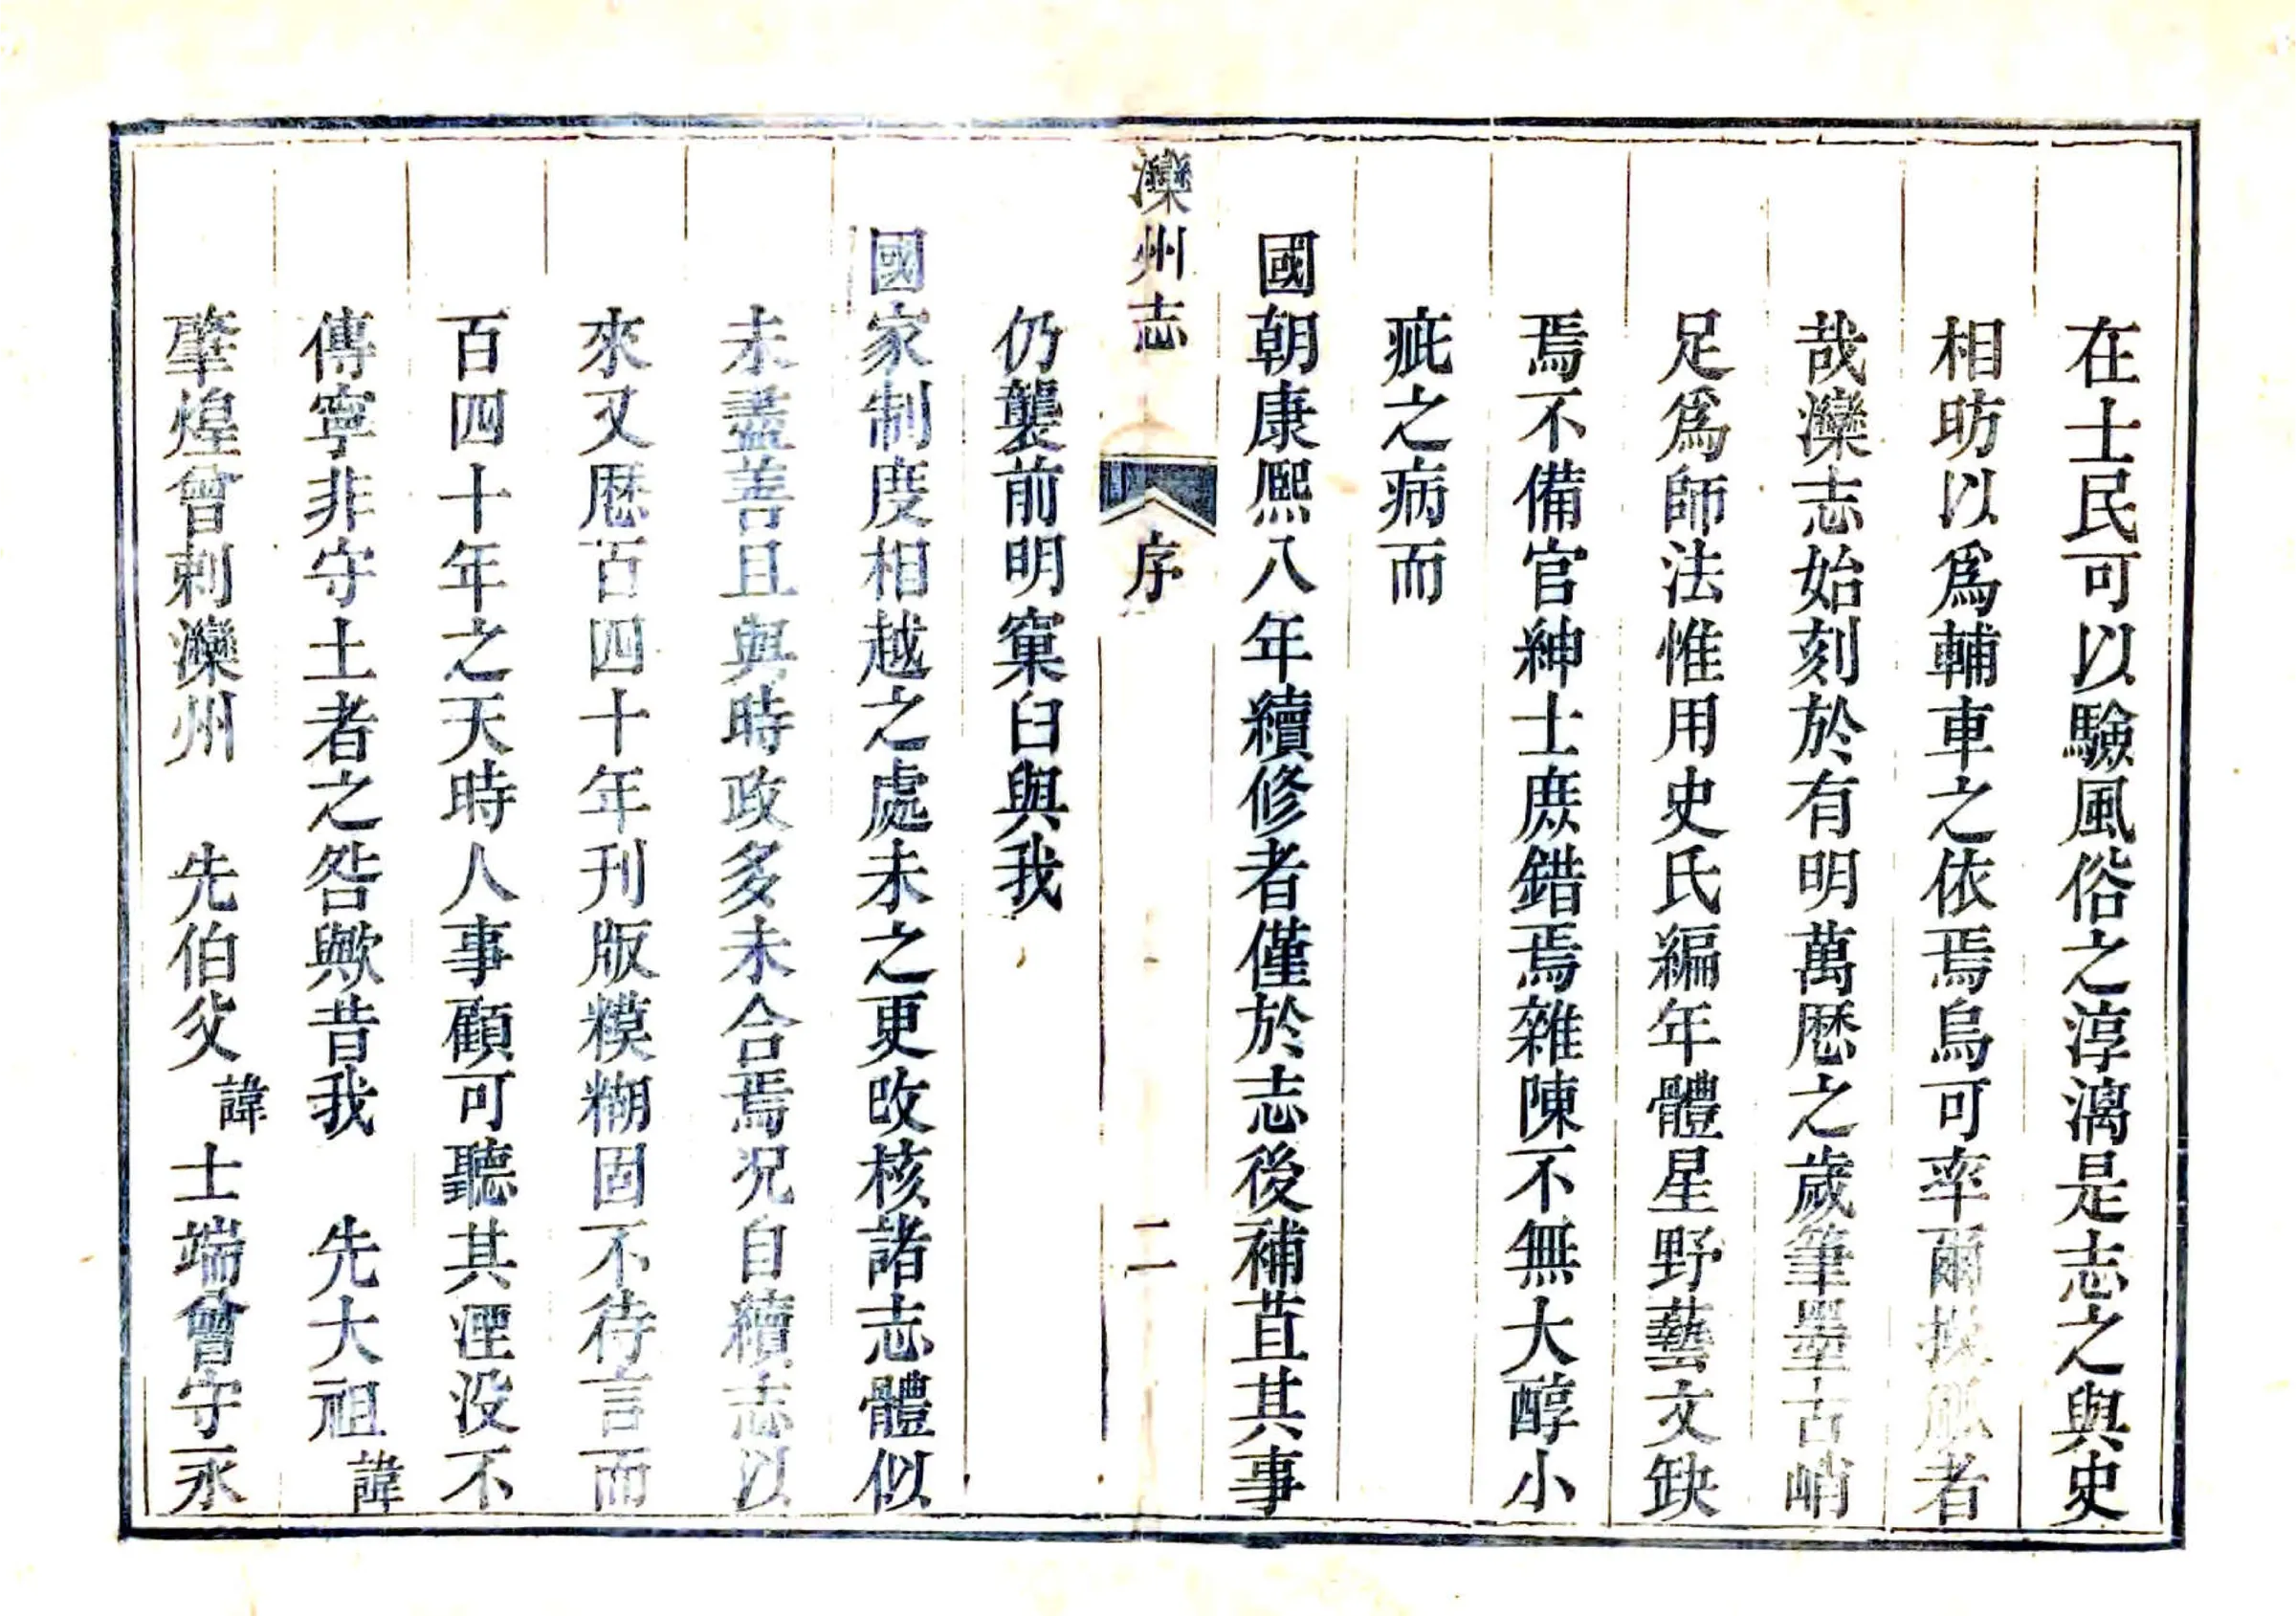 在士民可以驗風俗之淳漓是志之與史
相昉以爲輔車之依焉烏可率爾操觚者
哉灤志始刻於有明萬厯之歲筆墨古峭
足爲師法惟用史氏編年體星野藝文缺
焉不備官紳士庶錯焉雜陳不無大醇小
疵之病而
國朝康熙八年續修者僅於志後補苴其事
灤州志
序
二
仍襲前明窠臼與我
國家制度相越之處未之更改核諸志體似
未盡善且與時政多未合焉況自續志以
來又厯百四十年刊版糢糊固不待言而
百四十年之天時人事顧可聽其湮没不
傳寧非守土者之咎歟昔我 先大祖諱
肇煌曾刺灤州 先伯父諱士端曾守永